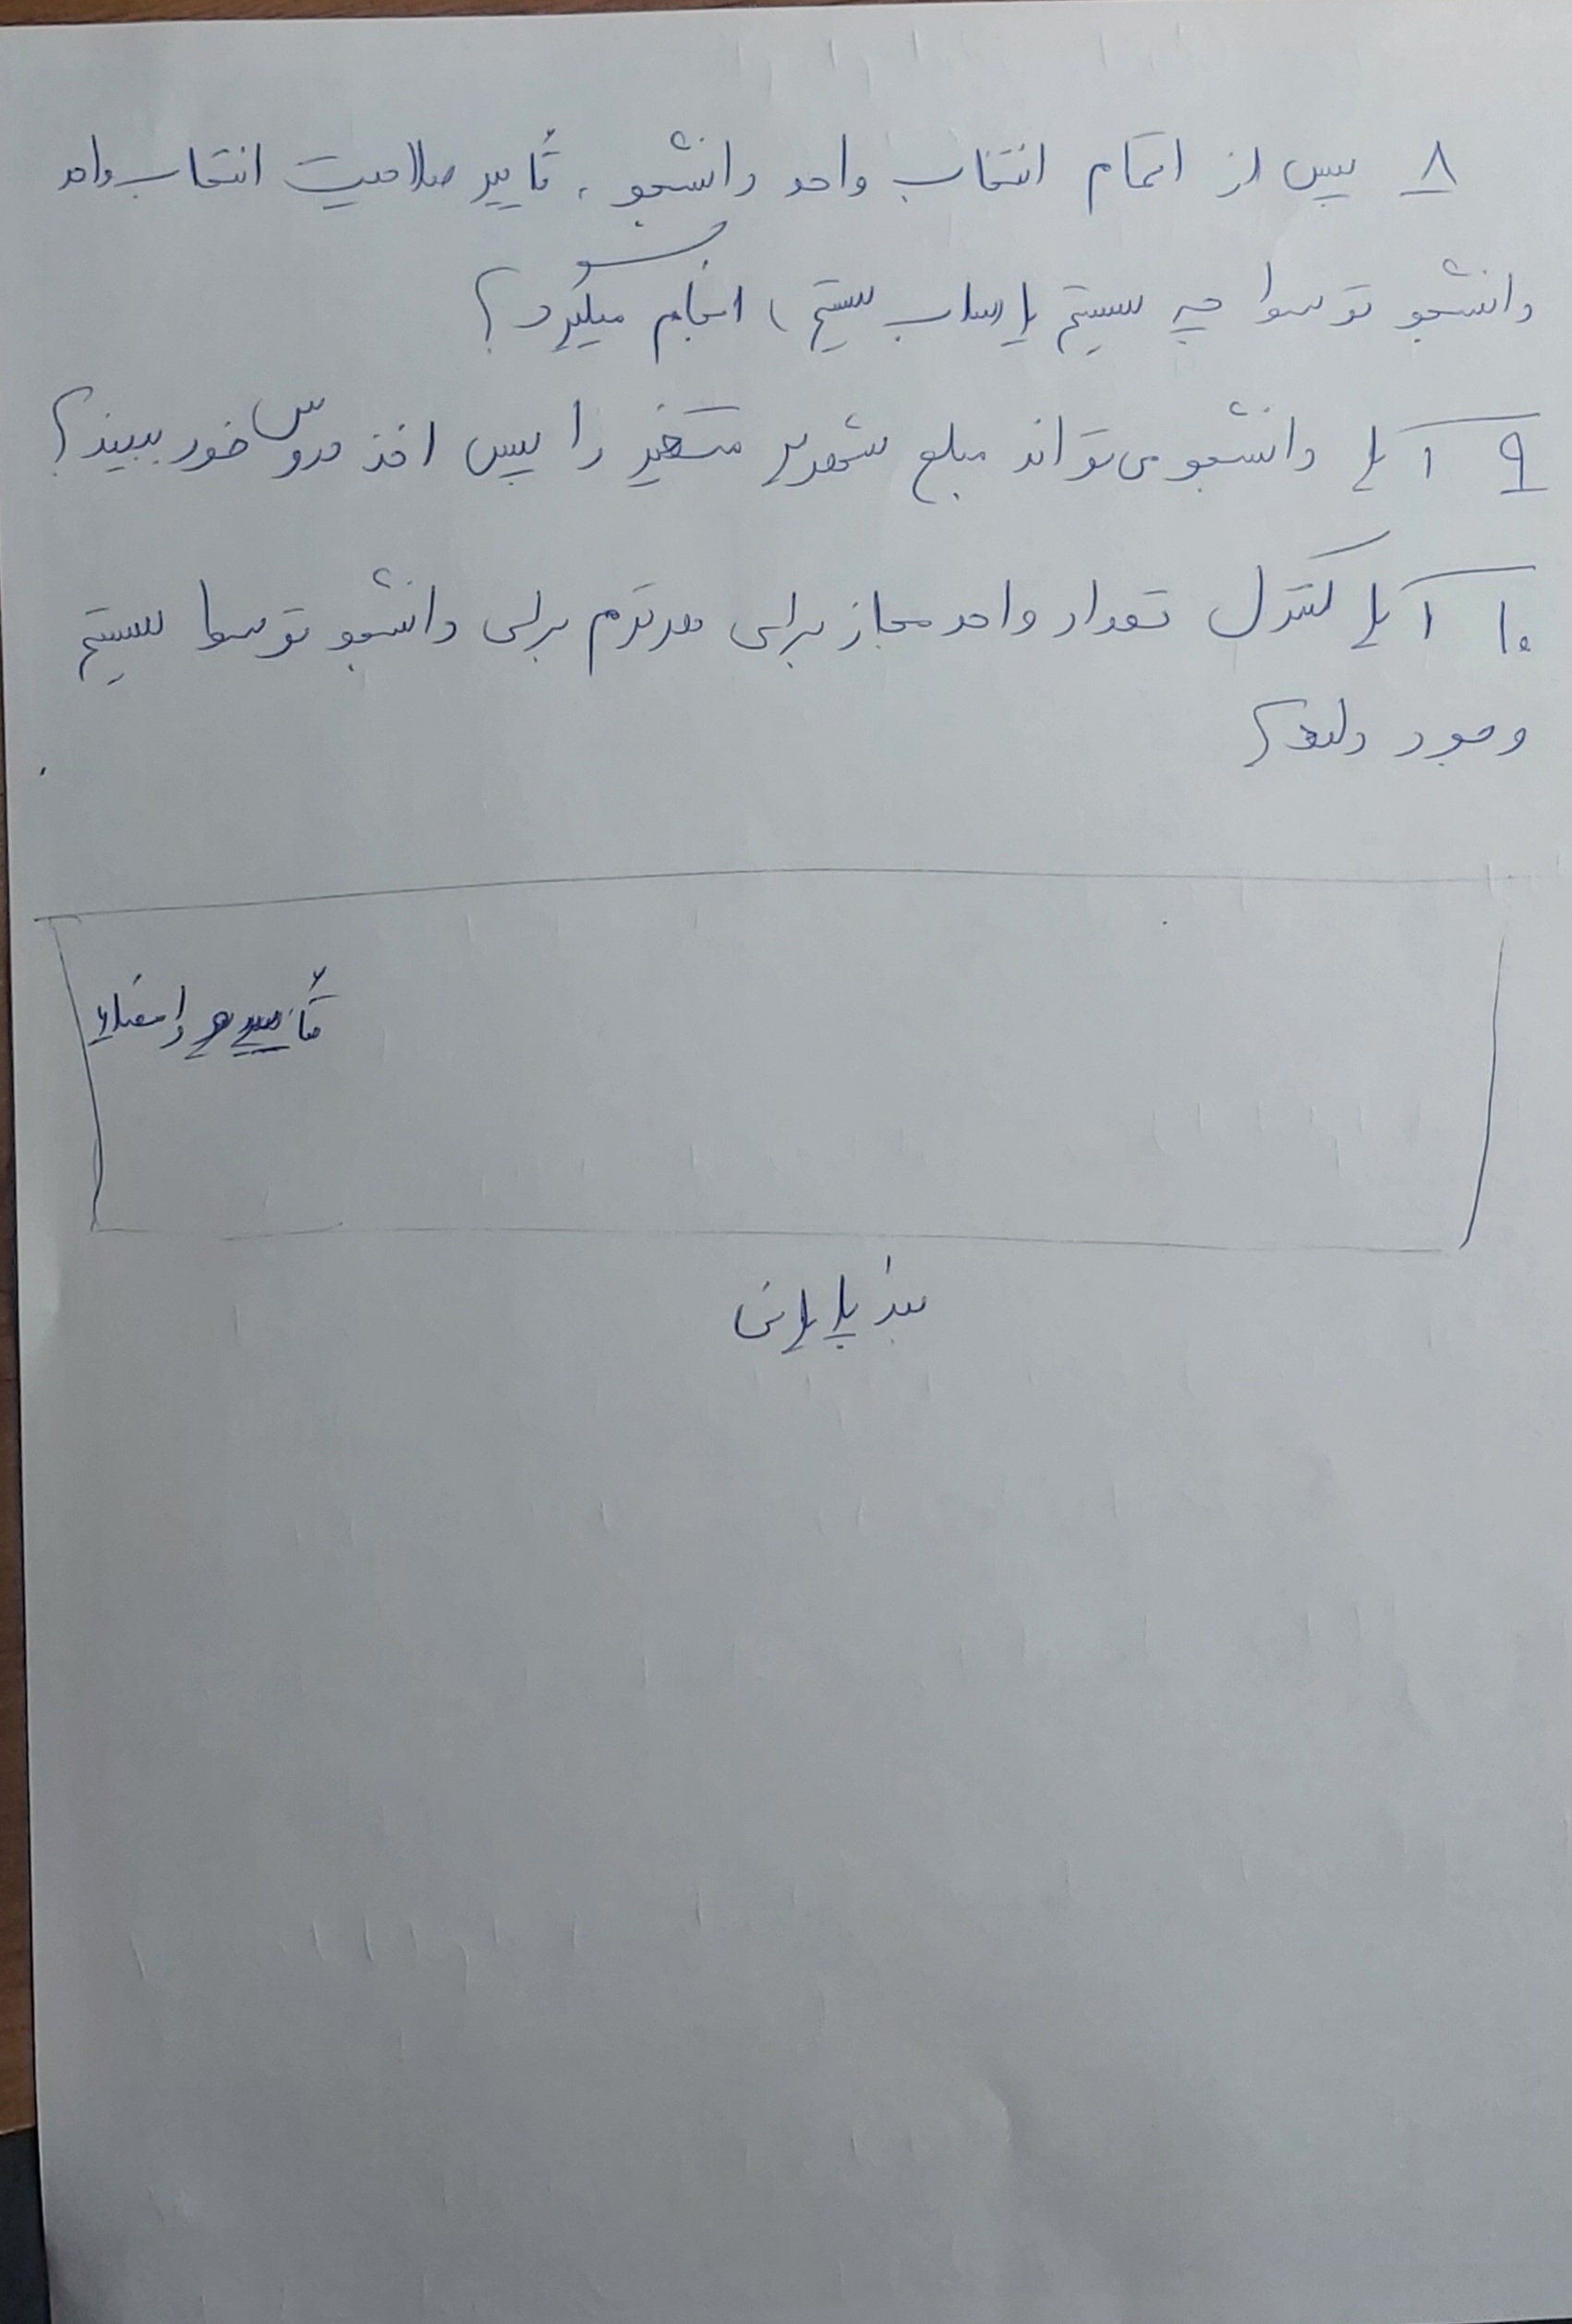 ۸ پس از اتمام انتخاب واحد دانشجو، تأیید صلاحیت انتخاب واحد
دانشجو توسط چه سیستم یا (ساب سیستم) انجام میگیرد؟
۹ آیا دانشجو می‌تواند مبلغ شهریه متغیر را پس اخذ دروس خود ببیند؟
۱۰ آیا کنترل تعداد واحد مجاز برای هر ترم برای دانشجو توسط سیستم
وجود دارد؟
بند پایانی